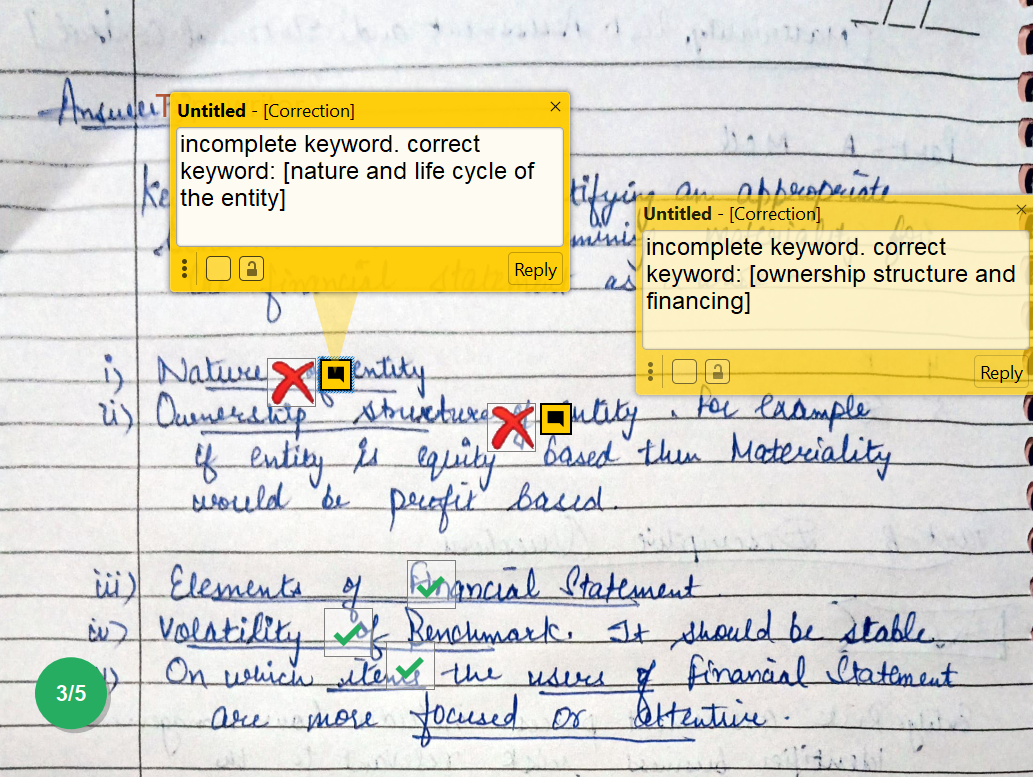 Answer
Untitled - [Correction]
incomplete keyword. correct
keyword: [nature and life cycle of
the entity]
Reply
Ke tifying an appropriate
Untitled - [Correction]
incomplete keyword. correct
keyword: [ownership structure and
financing]
Reply
financial as
i) Nature of entity
ii) Ownership structure of entity. For example
if entity is equity based then Materiality
would be profit based.
iii) Elements of Financial Statement
iv) Volatility of Benchmark. It should be stable
3/5
On which items the users of financial Statement
are more focused or attentive.